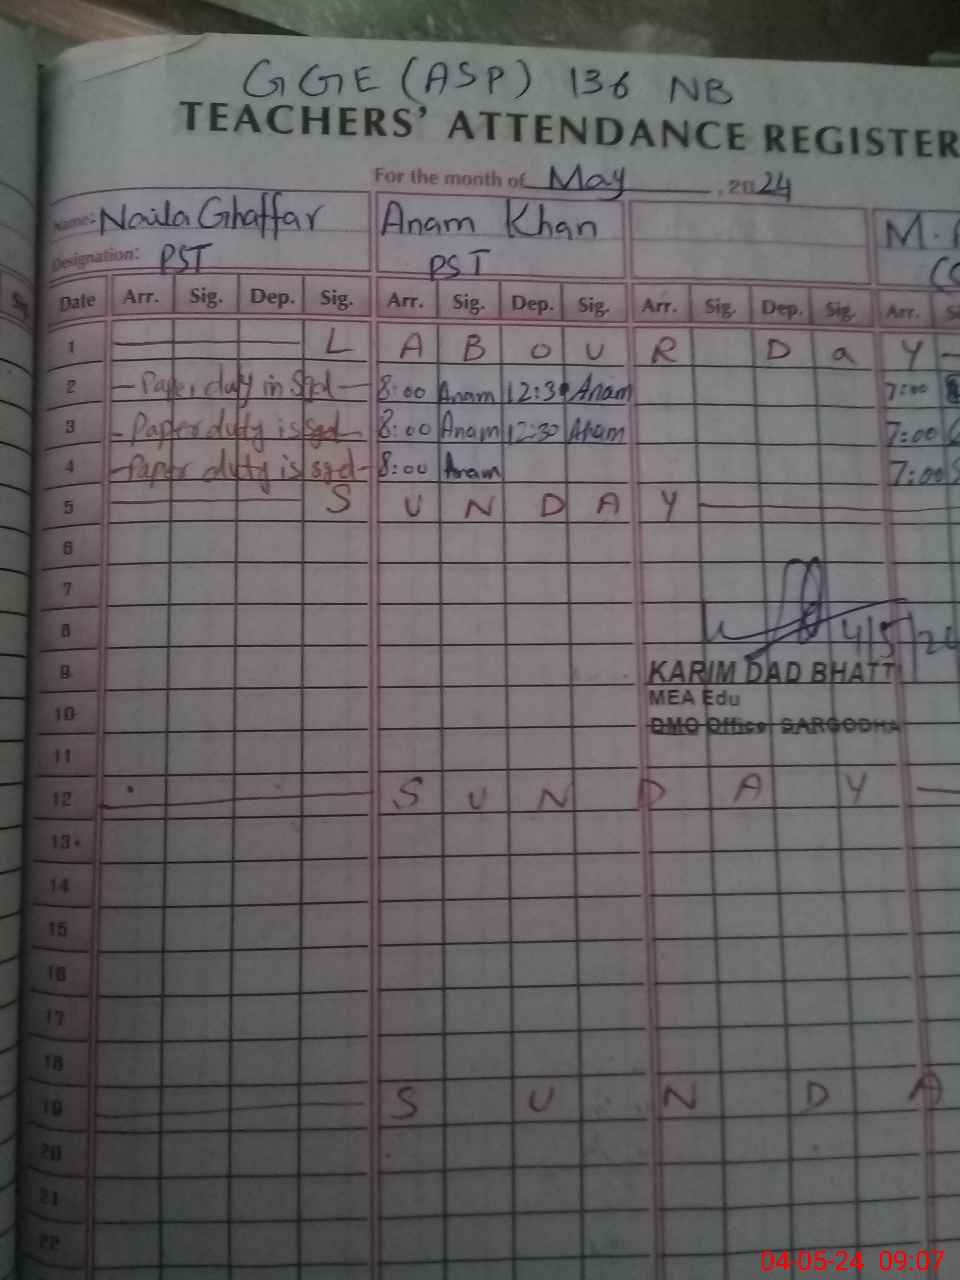 GGE (ASP) 136 NB
TEACHERS' ATTENDANCE REGISTER
For the month of May, 2024
Name: Naila Ghaffar Anam Khan M.
Designation: PST PST
Date Arr. Sig. Dep. Sig. Arr. Sig. Dep. Sig. Arr. Sig. Dep. Sig. Arr.
1 L A B O U R D a Y
2 Paper duty in Sgd 8:00 Anam 12:30 Anam 7:00
3 Paper duty is sgd 8:00 Anam 12:30 Anam 7:00
4 Paper duty is sgd 8:00 Anam 7:00
5 S U N D A Y
6
7
8 4/5/24
9 KARIM DAD BHATTI
MEA Edu
10 DMO Office SARGODHA
11
12 S U N D A Y
13
14
15
16
17
18
19 S U N D A
20
21
22
04-05-24 09:07